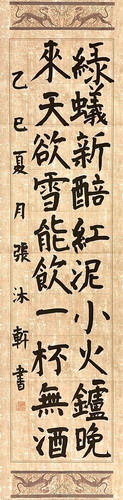 綠蟻新醅紅泥小火鑪晚
來天欲雪能飲一杯無酒
乙巳夏月張沐軒書